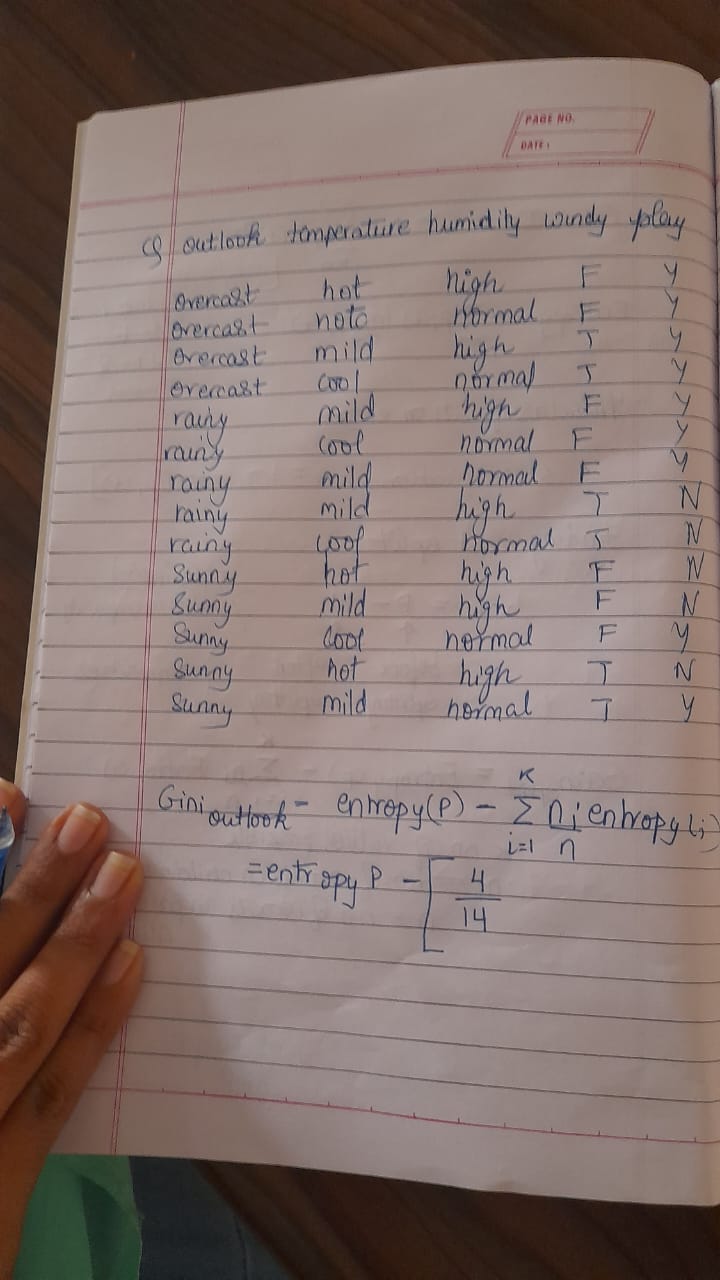 PAGE NO.
DATE:
outlook temperature humidity windy play
overcast hot high F Y
overcast hoto normal F Y
overcast mild high T Y
overcast cool normal T Y
rainy mild high F Y
rainy cool normal F Y
rainy mild normal F Y
rainy mild high T N
rainy cool normal T N
Sunny hot high F N
Sunny mild high F N
Sunny cool normal F Y
Sunny hot high T N
Sunny mild normal T Y
Gini outlook = entropy(P) - K Σ i=1 ni/n entropy(i)
= entropy P - [ 4/14